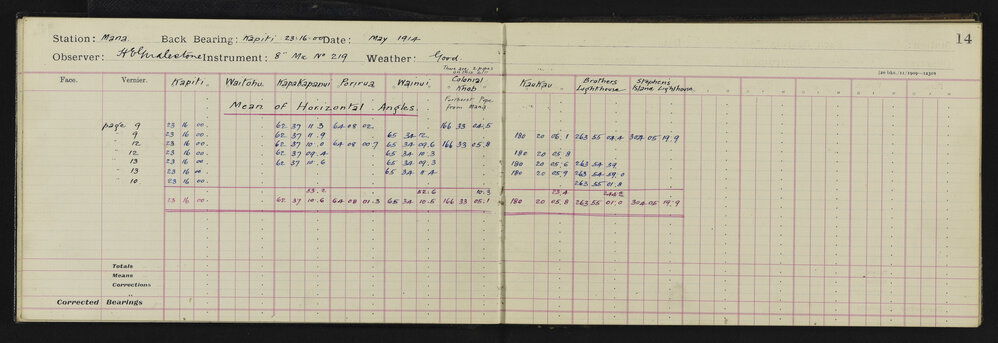 14
Station: Mana. Back Bearing: Kapiti 23·16·00 Date: May 1914
Observer: Instrument: 8" Me No 219 Weather: Good.
There are 2 pipes
Face. Vernier. Kapiti. Waitohu. Kapakapanui Porirua Wainui Colonial Knob Kaukau Brothers Lighthouse Stephens Island Lighthouse
Mean of Horizontal Angles. Furthest Pipe from Mana
page 9 23 16 00. 62 37 11.3 64 08 02. 166 33 04.5
" 9 23 16 00. 62 37 11.9 65 34 12. 180 20 06.1 263 55 04.4 304 05 19.9
" 12 23 16 00. 62 37 10.0 64 08 00.7 65 34 09.6 166 33 05.8
" 12 23 16 00. 62 37 09.4 65 34 10.3 180 20 05.8
" 13 23 16 00. 62 37 10.6 65 34 09.3 180 20 05.6 263 54 59.
" 13 23 16 00. 65 34 11.4 180 20 05.9 263 54 59.0
" 10 23 16 00. 263 55 01.8
53.2 52.6 10.3 23.4
23 16 00. 62 37 10.6 64 08 01.3 65 34 10.5 166 33 05.1 180 20 05.8 263 55 01.0 304 05 19.9
Totals
Means
Corrections
Corrected Bearings